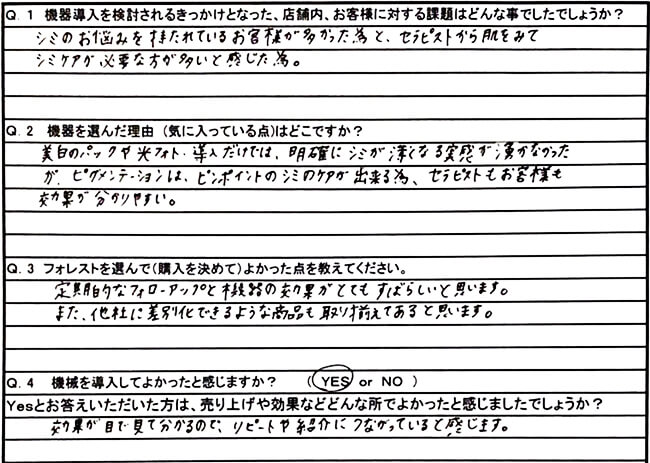 Q. 1 機器導入を検討されるきっかけとなった、店舗内、お客様に対する課題はどんな事でしたでしょうか?
シミのお悩みを持たれているお客様が多かった為と、セラピストから肌をみて
シミケアが必要な方が多いと感じた為。
Q. 2 機器を選んだ理由 (気に入っている点)はどこですか?
美白のパックや光フォト・導入だけでは、明確にシミが薄くなる実感が湧かなかった
が、ピグメンテーションは、ピンポイントのシミのケアが出来る為、セラピストもお客様も
効果が分かりやすい。
Q. 3 フォレストを選んで(購入を決めて)よかった点を教えてください。
定期的なフォローアップと機器の効果がとてもすばらしいと思います。
また、他社に差別化できるような商品も取り揃えてあると思います。
Q. 4 機械を導入してよかったと感じますか? ( YES or NO )
Yesとお答えいただいた方は、売り上げや効果などどんな所でよかったと感じましたでしょうか?
効果が目で見て分かるので、リピートや紹介につながっていると感じます。